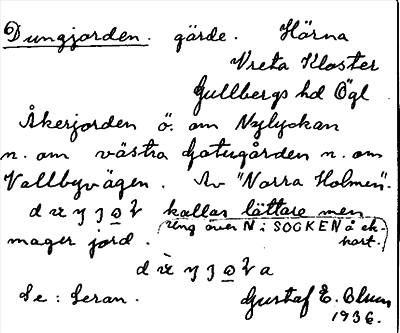 Dungjorden. gärde. Hörna
Vreta Kloster
Gullbergs hd Ögl
Åkerjorden ö. om Nylyckan
n. om västra Gatugården n. om
Vallbyvägen. Av "Norra Holmen".
kallar lättare men
ring över N i SOCKEN å ek-
mager jord.
kart.
Se: Leran.
Gustaf E. Olsson
1936.